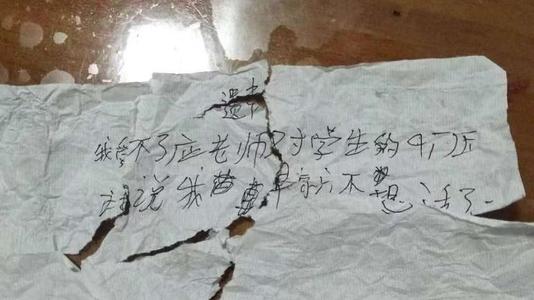 遗书
我受不了庄老师对学生的
说我早就不想活了